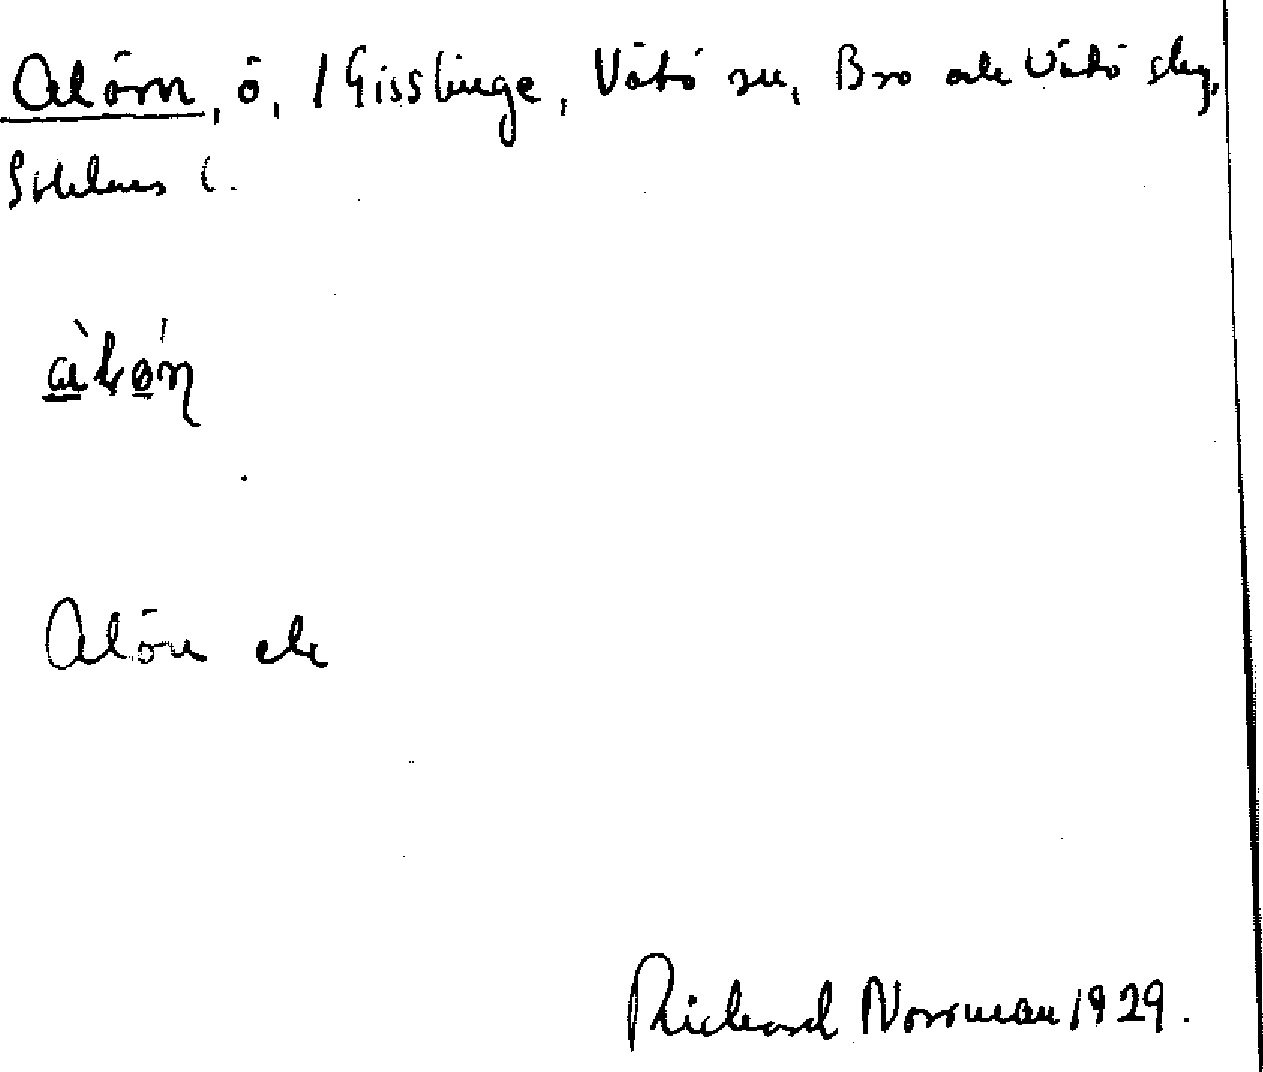 Alörn, ö, / Gisslinge, Vätö sn, Bro och Vätö skg,
Sthlms l.
Alön ek
Richard Norrman 1929.